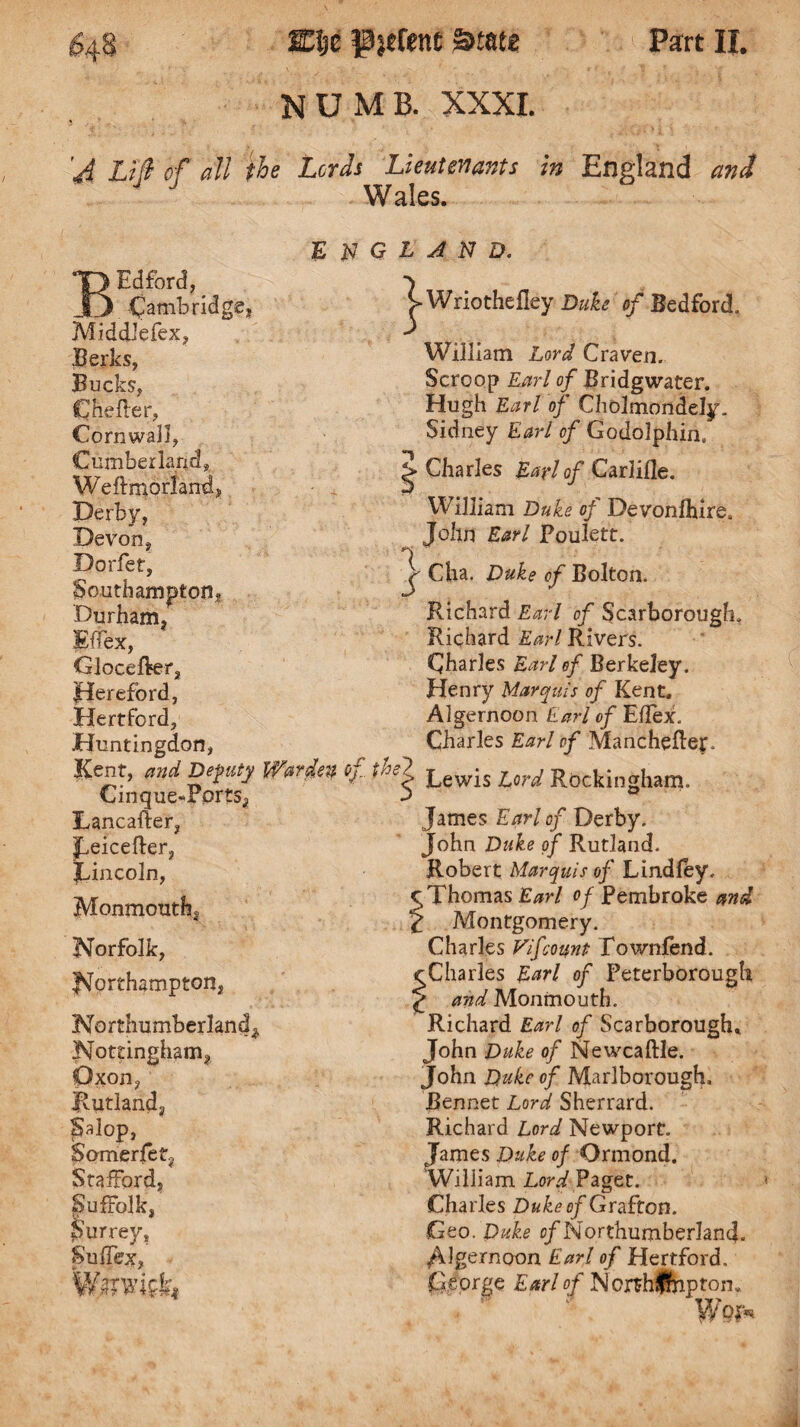 648 The Pꝛeſent State Part II.
NUMB. XXXI.
A Liſt of all the Lords Lieutenants in England and
Wales.
ENGLAND.
BEdford,
Cambridge, } Wriotheſley Duke of Bedford.
Middleſex,
Berks, William Lord Craven.
Bucks, Scroop Earl of Bridgwater.
Cheſter, Hugh Earl of Cholmondely.
Cornwall, Sidney Earl of Godolphin.
Cumberland, } Charles Earl of Carliſle.
Weſtmorland,
Derby, William Duke of Devonſhire.
Devon, John Earl Poulett.
Dorſet, } Cha. Duke of Bolton.
Southampton,
Durham, Richard Earl of Scarborough.
Eſſex, Richard Earl Rivers.
Gloceſter, Charles Earl of Berkeley.
Hereford, Henry Marquis of Kent.
Hertford, Algernoon Earl of Eſſex.
Huntingdon, Charles Earl of Mancheſter.
Kent, and Deputy Warden of the } Lewis Lord Rockingham.
Cinque-Ports,
Lancaſter, James Earl of Derby.
Leiceſter, John Duke of Rutland.
Lincoln, Robert Marquis of Lindſey.
Monmouth, { Thomas Earl of Pembroke and
Montgomery.
Norfolk, Charles Viſcount Townſend.
Northampton, { Charles Earl of Peterborough
and Monmouth.
Northumberland, Richard Earl of Scarborough.
Nottingham, John Duke of Newcaſtle.
Oxon, John Duke of Marlborough.
Rutland, Bennet Lord Sherrard.
Salop, Richard Lord Newport.
Somerſet, James Duke of Ormond.
Stafford, William Lord Paget.
Suffolk, Charles Duke of Grafton.
Surrey, Geo. Duke of Northumberland.
Suſſex, Algernoon Earl of Hertford.
Warwick, George Earl of Northampton.
Wor-